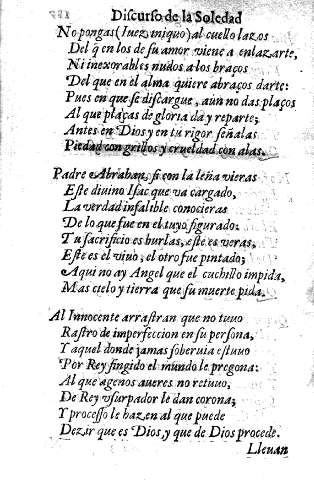 Discurso de la Soledad
No pongas (Iuez iniquo) al cuello lazos
Del q̃ en los de su amor viene a enlazarte,
Ni inexorables nudos a los braços
Del que en el alma quiere abraços darte:
Pues en que se discargue, aun no das plaços
Al que plaças de gloria da y reparte;
Antes en Dios y en tu rigor señalas
Piedad con grillos y crueldad con alas.
Padre Abrahan, si con la leña vieras
Este diuino Isac que va cargado,
La verdad infalible conocieras
De lo que fue en el tuyo figurado:
Tu sacrificio es burlas, este es veras,
Este es el viuo, el otro fue pintado;
Aqui no ay Angel que el cuchillo impida,
Mas cielo y tierra que su muerte pida.
Al Innocente arrastran que no tuuo
Rastro de imperfeccion en su persona,
Y aquel donde jamas soberuia estuuo
Por Rey fingido el mundo le pregona:
Al que agenos aueres no retuuo,
De Rey vsurpador le dan corona;
Y processo le hazen al que puede
Dezir que es Dios, y que de Dios procede.
Lleuan